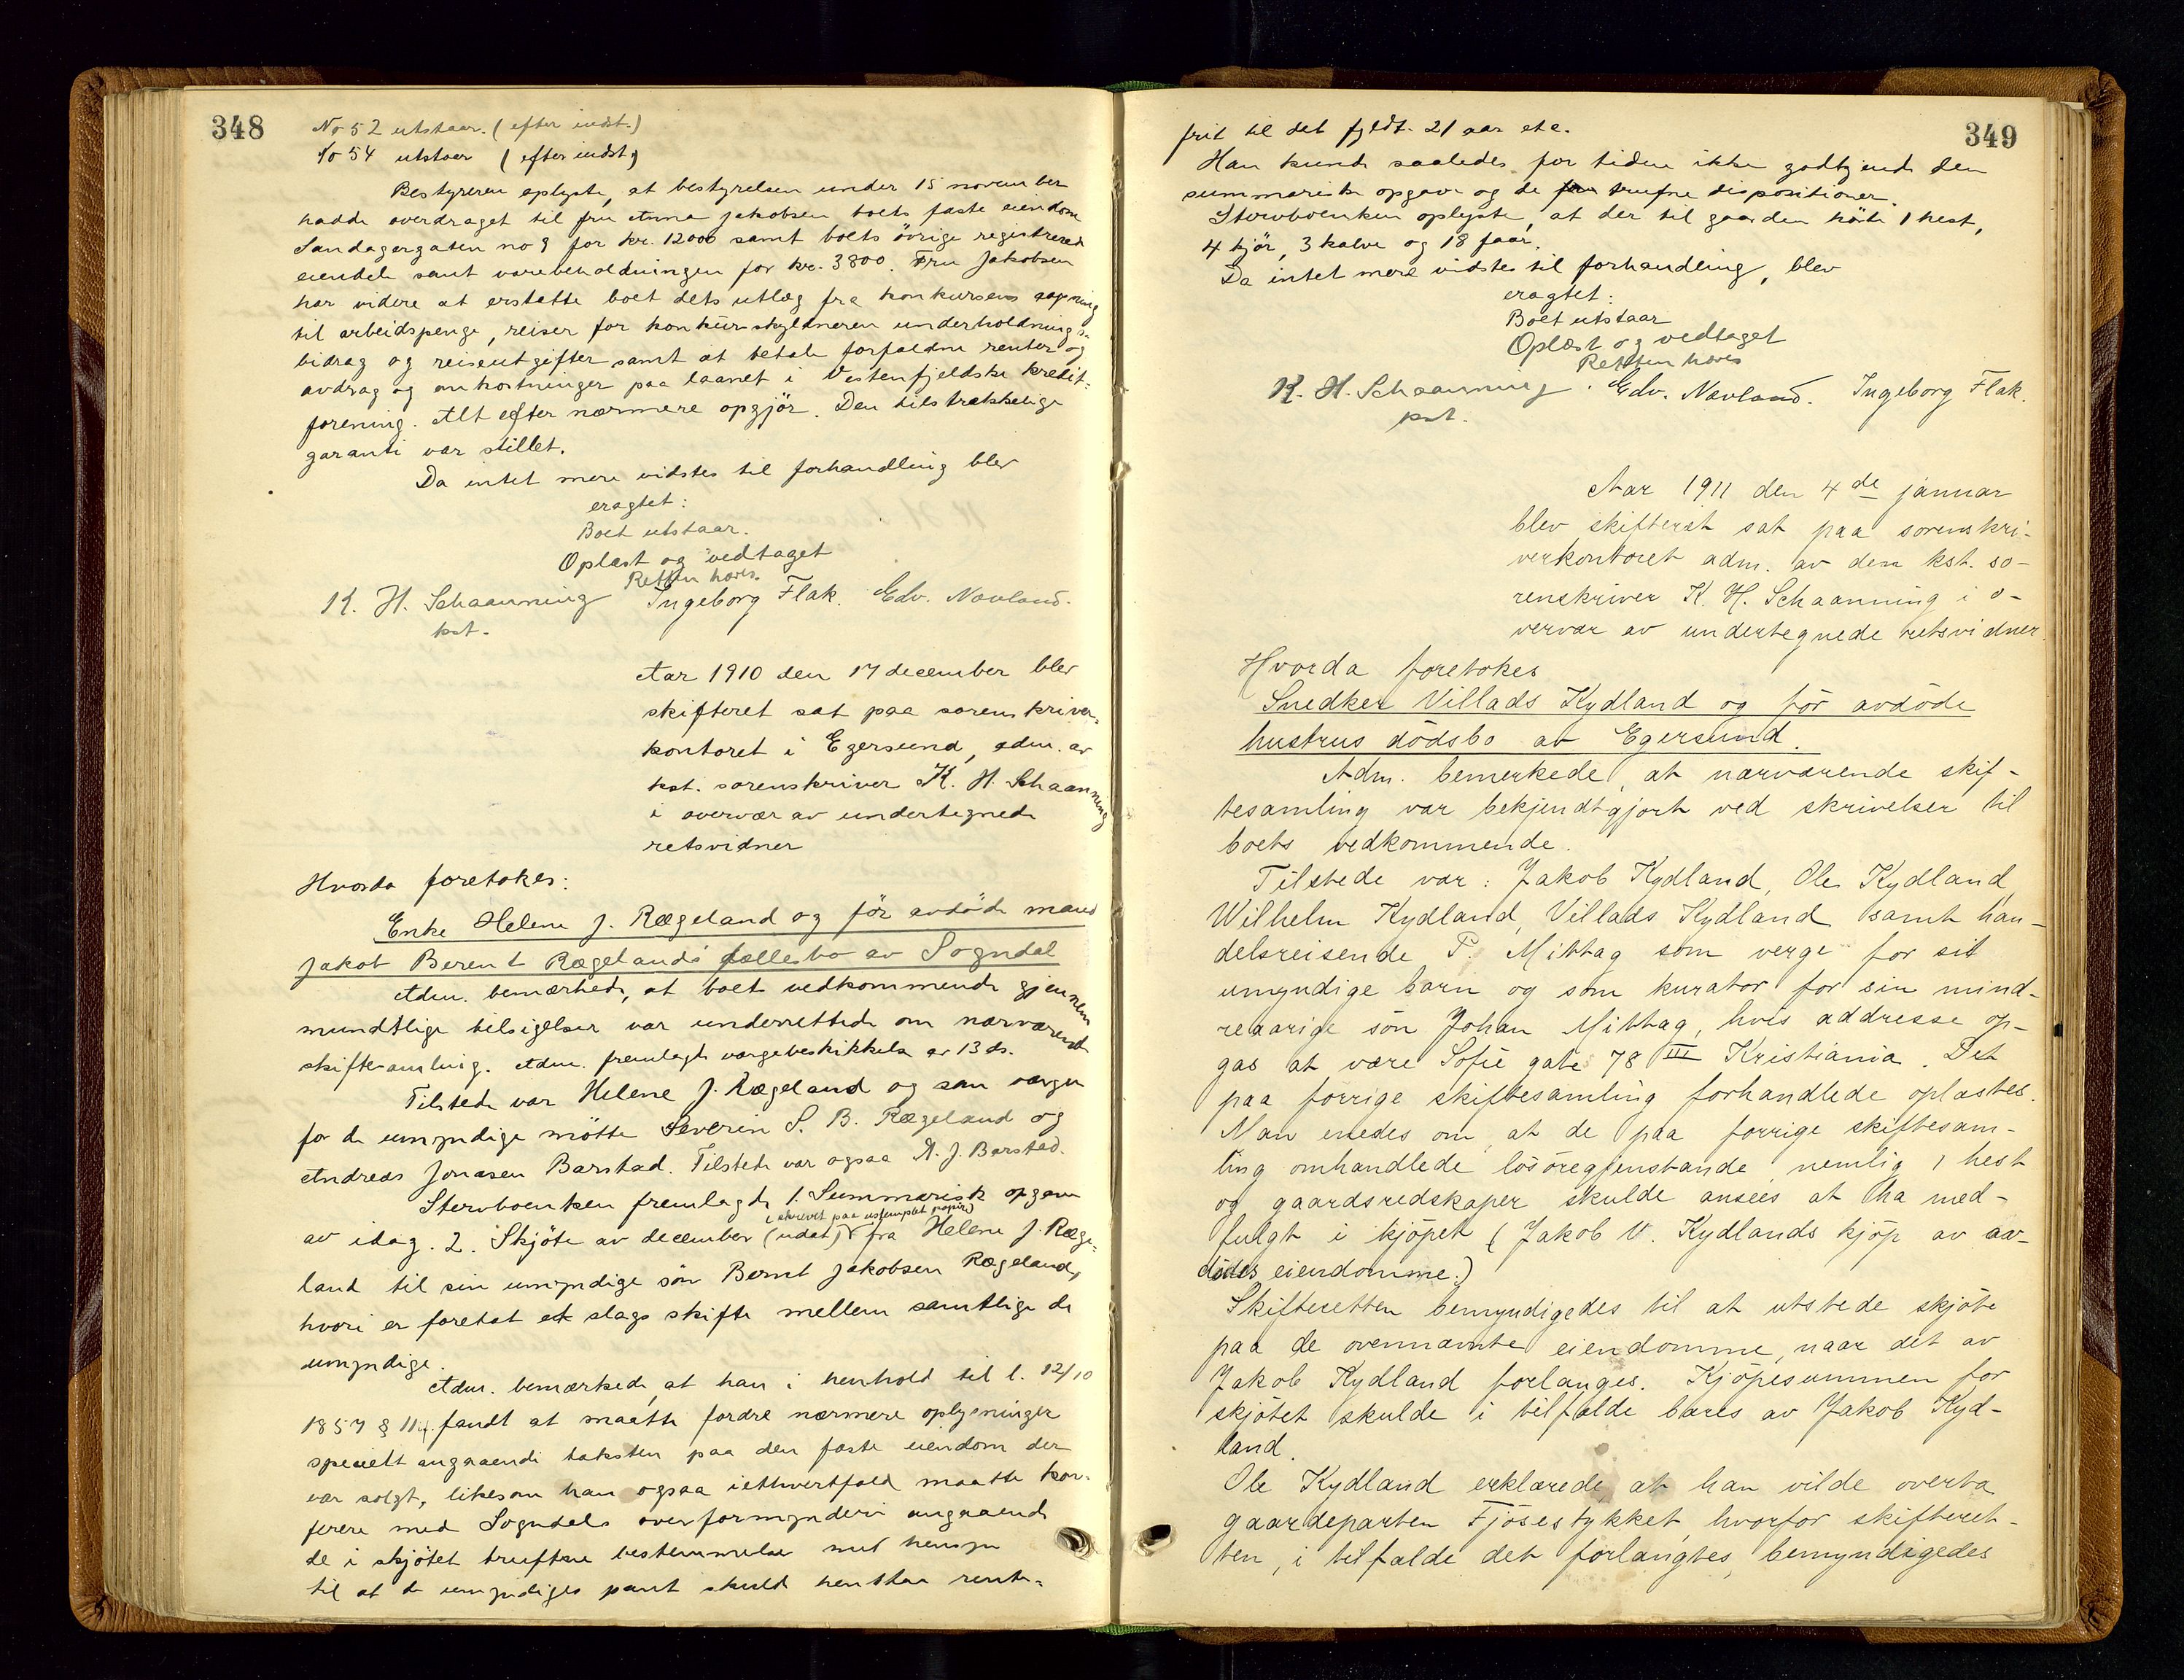 348
No 52 utstaar. (efter indst.)
No 54 utstaar (efter indst.)
Bestyreren oplyste, at bestyrelsen under 15 november
hadde overdraget til fru Anna Jakobsen boets faste eiendom
Sandagergaten no 9 for kr. 12000 samt boets övrige registrerede
eiendele samt varebeholdningen for kr. 3800. Fru Jakobsen
har videre at erstatte boet dets utlæg fra konkursens aapning
til arbeidspenge, reiser for konkursskyldneren underholdnings-
bidrag og reiseutgifter samt at betale forfaldne renter og
avdrag og omkostninger paa laanet i Vestenfjeldske kredit-
forening. Alt efter nærmere opgjör. Den tilstrækkelige
garanti var stillet.
Da intet mere vidstes til forhandling blev
eragtet:
Boet utstaar.
Oplæst og vedtaget
Retten hæves.
K. H. Schaanning Ingeborg Flak. Edv. Nævland.
kst.
Aar 1910 den 17 december blev
skifteret sat paa sorenskriver-
kontoret i Egersund, adm. av
kst. sorenskriver K. H Schaanning
i overvær av undertegnede
retsvidner
Hvorda foretokes:
Enke Helene J. Rægeland og för avdöde mand
Jakob Berent Rægelands fællesbo av Sogndal
Adm. bemærkede, at boet vedkommende gjennem
mundtlige tilsigelser var underrettede om nærværende
skiftesamling. Adm. fremlagte værgebeskikkelse av 13 ds.
Tilstede var Helene J. Rægeland og som værger
for de umyndige mötte Severin S. B. Rægeland og
Andreas Jonasen Barstad. Tilstede var ogsaa A. J. Barstad.
Stervboenken fremlagde 1. Summarisk opgave
(skrevet paa ustemplet papir)
av idag. 2. Skjöte av december (udat) fra Helene J. Ræge-
land til sin umyndige sön Bernt Jakobsen Rægeland,
hvori er foretat et slags skifte mellem samtlige de
umyndige.
Adm. bemærkede, at han i henhold til l. 12/10
1857 § 11 fandt at maatte fordre nærmere oplysninger
specielt angaaende taksten paa den faste eiendom der
var solgt, likesom han ogsaa iethvertfald maatte kon-
ferere med Sogndals overformynderi angaaende
de i skjötet trufne bestemmelser med hensyn
til at de umyndiges pant skulde henstaa rente-
349
frit til det fyldt. 21 aar etc.
Han kunde saaledes for tiden ikke godkjende den
summariske opgave og de trufne dispositioner.
Stervboenken oplyste, at der til gaarden hörte 1 hest,
4 kjör, 3 kalve og 18 faar.
Da intet mere vidstes til forhandling, blev
eragtet:
Boet utstaar
Oplæst og vedtaget
Retten hæves
K. H. Schaanning. Edv. Nævland. Ingeborg Flak.
kst.
Aar 1911 den 4de januar
blev skifteret sat paa sorenskri-
verkontoret adm. av den kst. so-
renskriver K. H. Schaanning i o-
vervær av undertegnede retsvidner.
Hvorda foretokes
Snedker Villads Kydland og för avdöde
hustrus dödsbo av Egersund.
Adm. bemerkede, at nærværende skif-
tesamling var bekjendtgjort ved skrivelser til
boets vedkommende.
Tilstede var: Jakob Kydland, Ole Kydland,
Wilhelm Kydland, Villads Kydland samt han-
delsreisende P. Mittag som verge for sit
umyndige barn og som kurator for sin mind-
reaarige sön Johan Mittag, hvis addresse op-
gas at være Sofie gate 78 III Kristiania. Det
paa forrige skiftesamling forhandlede oplæstes.
Man enedes om, at de paa forrige skiftesam-
ling omhandlede lösöregjenstande, nemlig 1 hest
og gaardsredskaper skulde ansees at ha med-
fulgt i kjöpet (Jakob V. Kydlands kjöp av av-
dödes eiendomme.)
Skifteretten bemyndigedes til at utstede skjöte
paa de ovennævnte eiendomme, naar det av
Jakob Kydland forlanges. Kjöpesummen for
skjötet skulde i tilfælde bæres av Jakob Kyd-
land.
Ole Kydland erklærede, at han vilde overta
gaardeparten Fjösestykket, hvorfor skifteret-
ten, i tilfælde det forlangtes, bemyndigedes